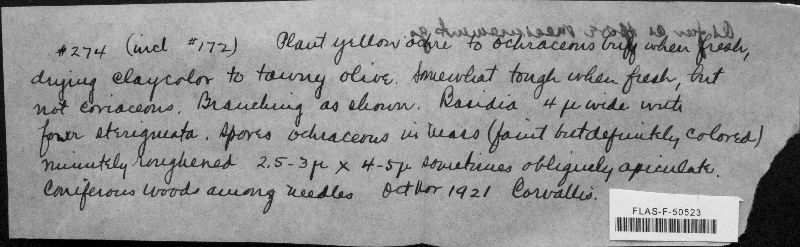 #274 (incl #172) Plant yellow ochre to ochraceous buff when fresh,
drying claycolor to tawny olive. Somewhat tough when fresh, but
not coriaceous. Branching as shown. Basidia 4 µ wide with
four sterigmata. Spores ochraceous in mass (faint but definitely colored)
minutely roughened 2.5-3µ x 4-5µ sometimes obliquely apiculate.
Coniferous woods among needles Oct Nov 1921 Corvallis.
FLAS-F-50523